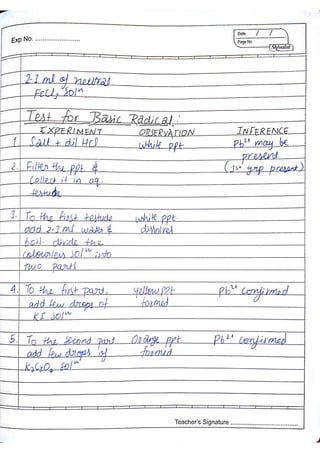 Exp No. ........................
Date / /
Page No.
2-3 ml of neutral
FeCl3 solⁿ
Test for Basic Radical :
EXPERIMENT OBSERVATION INFERENCE
1. Salt + dil HCl white ppt Pb²⁺ may be present
2. Filter the ppt & (1st grp present)
Collect it in aq.
testude
3. To the first testude white ppt
add 2-3 ml water & dissolves
boil. divide the
colourless solⁿ into
two parts
4. To the first part, yellow ppt Pb²⁺ confirmed
add few drops of formed
KI solⁿ
5. To the second part Orange ppt Pb²⁺ confirmed
add few drops of formed
K2CrO4 solⁿ
Teacher's Signature ..............................